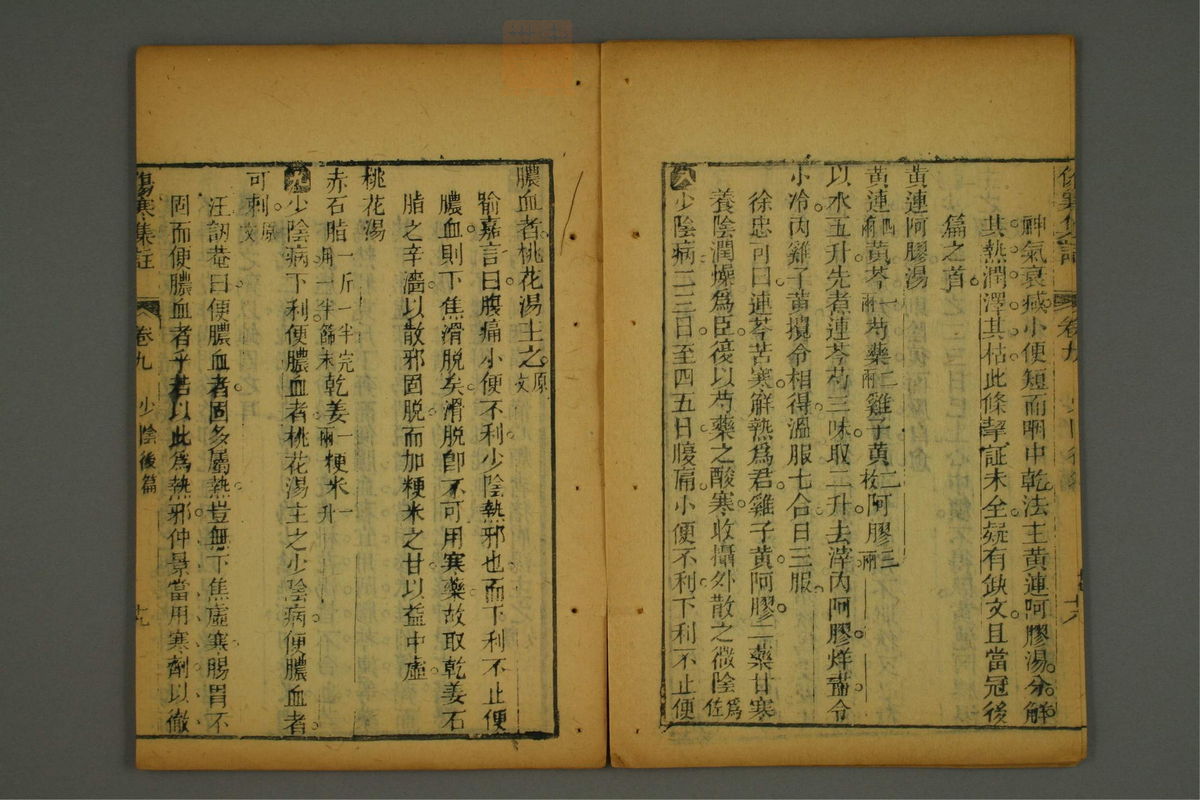 神氣衰減小便短而咽中乾法主黃連阿膠湯分解
其熱潤澤其枯此條聲証未全疑有缺文且當冠後
篇之首
黃連阿膠湯
黃連四兩黃芩一兩芍藥二兩雞子黃二枚阿膠三兩
以水五升先煮連芩芍三味取二升去滓內阿膠烊盡令
小冷內雞子黃攪令相得溫服七合日三服
徐忠可曰連芩苦寒解熱為君雞子黃阿膠二藥甘寒
養陰潤燥為臣復以芍藥之酸寒收攝外散之微陰為佐
少陰病二三日至四五日腹痛小便不利下利不止便
膿血者桃花湯主之原文
喻嘉言曰腹痛小便不利少陰熱邪也而下利不止便
膿血則下焦滑脫矣滑脫卽不可用寒藥故取乾姜石
脂之辛濇以散邪固脫而加粳米之甘以益中虛
桃花湯
赤石脂一斤一半完用一半篩末乾姜一兩粳米一升
少陰病下利便膿血者桃花湯主之少陰病便膿血者
可刺原文
汪訒菴曰便膿血者固多屬熱豈無下焦虛寒腸胃不
固而便膿血者乎若以此為熱邪仲景當用寒劑以徹
傷寒集註 卷九 少陰後篇 十九